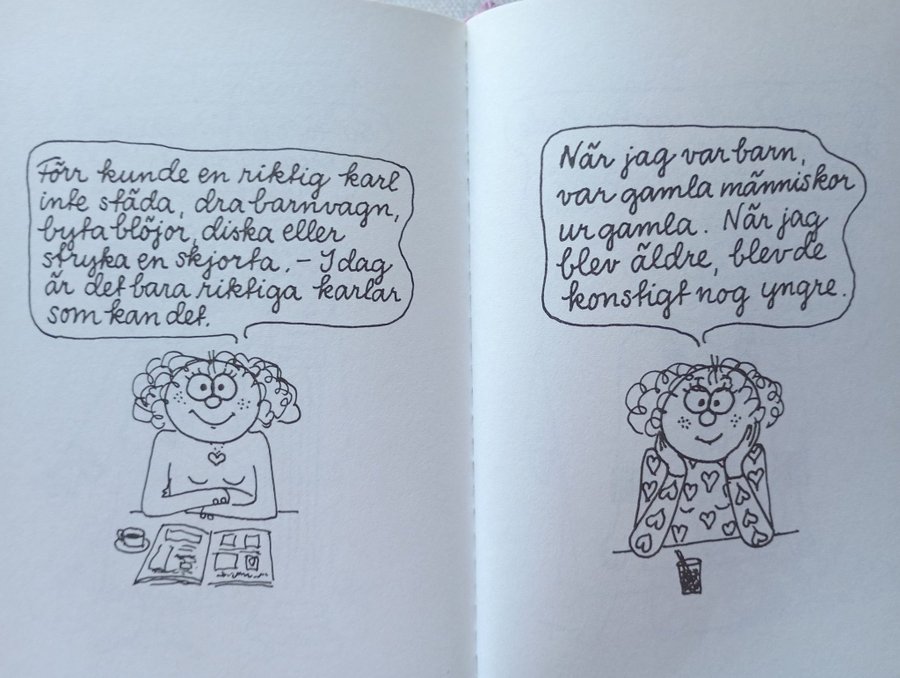 Förr kunde en riktig karl
inte städa, dra barnvagn,
byta blöjor, diska eller
stryka en skjorta. – I dag
är det bara riktiga karlar
som kan det.
När jag var barn,
var gamla människor
urgamla. När jag
blev äldre, blev de
konstigt nog yngre.